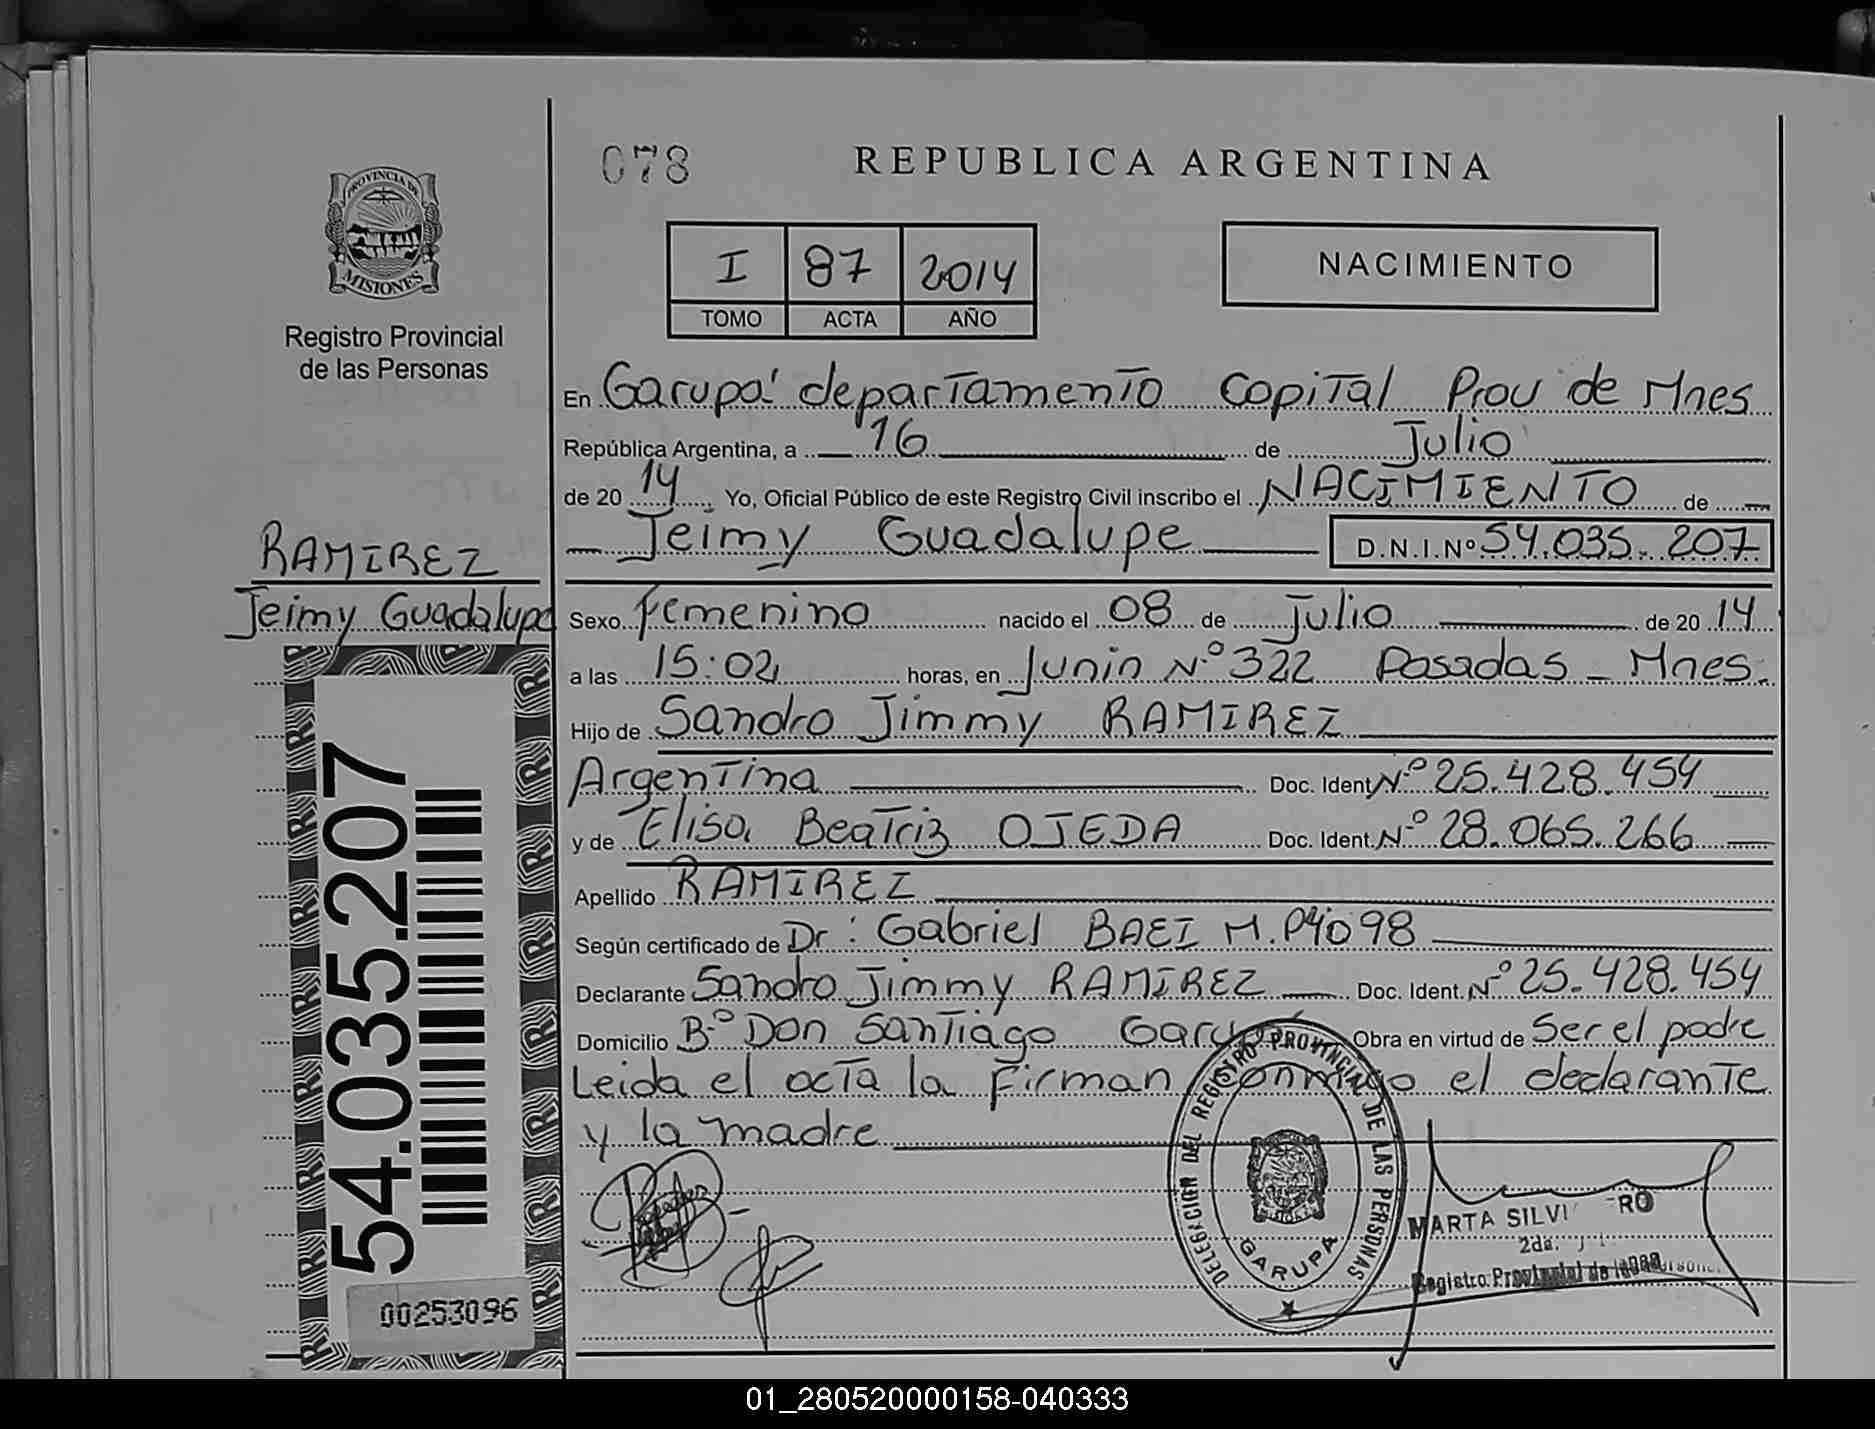 078
REPUBLICA ARGENTINA
PROVINCIA DE
MISIONES
Registro Provincial
de las Personas
I 87 2014
TOMO ACTA AÑO
NACIMIENTO
En Garupá departamento Capital Prov de Mnes
República Argentina, a 16 de Julio
de 20 14 Yo, Oficial Público de este Registro Civil inscribo el NACIMIENTO de
Jeimy Guadalupe D.N.I.Nº 54.035.207
RAMIREZ
Jeimy Guadalupe
Sexo Femenino nacido el 08 de Julio de 20 14
a las 15:02 horas, en Junin Nº 322 Posadas - Mnes.
Hijo de Sandro Jimmy RAMIREZ
Argentina Doc. Ident Nº 25.428.454
y de Elisa Beatriz OJEDA Doc. Ident. Nº 28.065.266
Apellido RAMIREZ
Según certificado de Dr: Gabriel BAEZ M.P4098
Declarante Sandro Jimmy RAMIREZ Doc. Ident. Nº 25.428.454
Domicilio Bº Don Santiago Garupá Obra en virtud de Ser el padre
Leida el acta la Firman conmigo el declarante
y la madre
54.035.207
00253096
DELEGACION DEL REGISTRO PROVINCIAL DE LAS PERSONAS
GARUPA
MARTA SILVI RO
2da.
Registro Provincial de las Personas
01_280520000158-040333